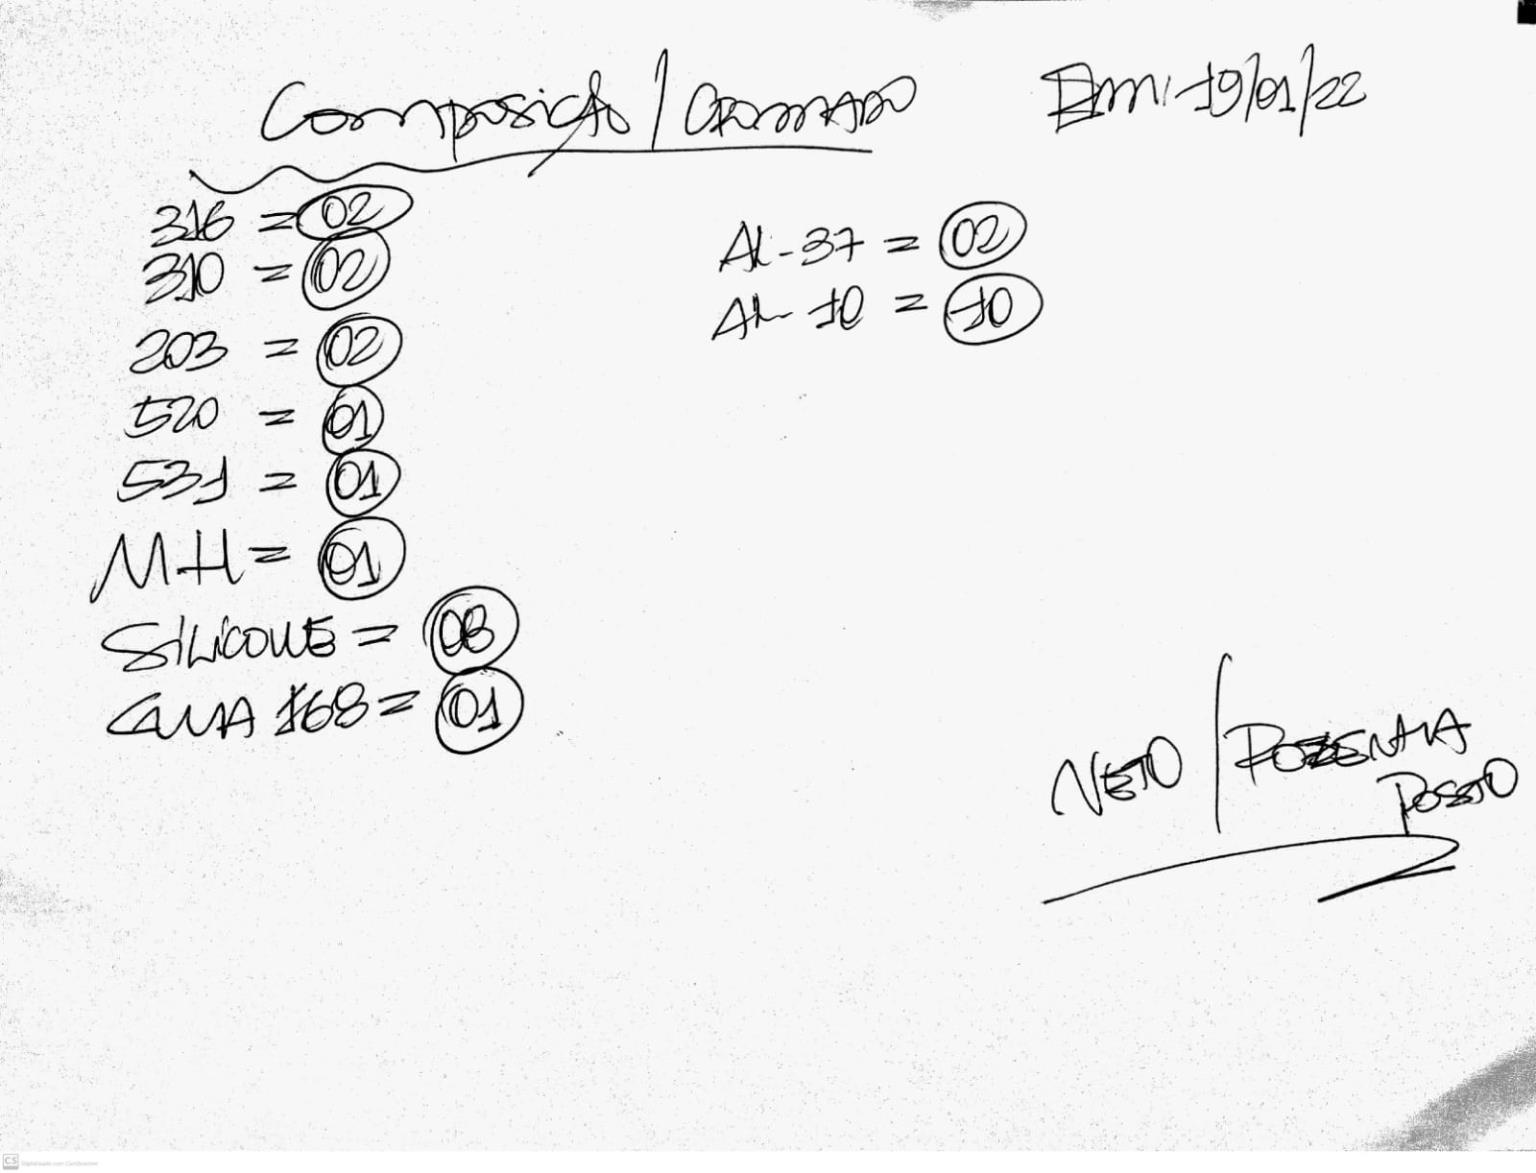 Composição / CROMADO
Em: 19/01/22
316 = 02
310 = 02
203 = 02
520 = 01
531 = 01
MH = 01
SILICONE = 08
168 = 01
AL-37 = 02
AL-10 = 10
NETO /
POSTO